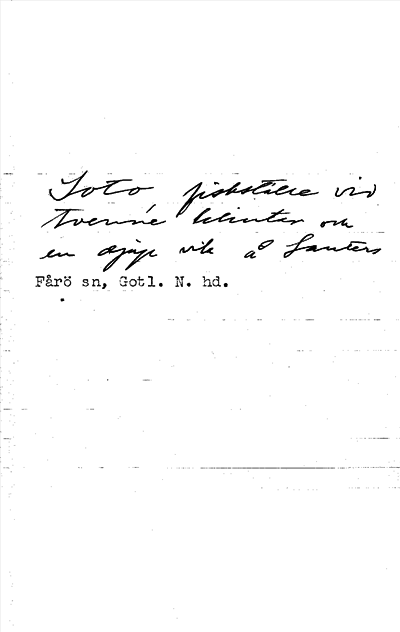 Soto fiskställe vid
tvenne klinter och
en djup vik å Lauters
Fårö sn, Gotl. N. hd.